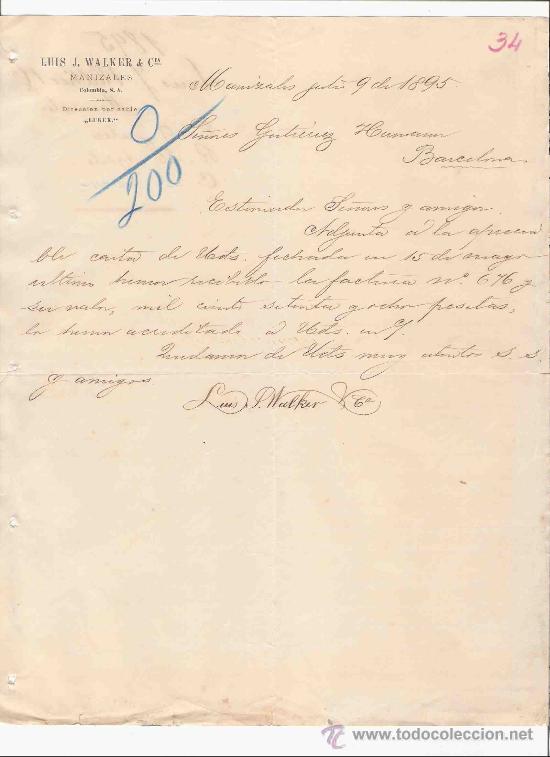 34
LUIS J. WALKER & Cía
MANIZALES
Colombia, S. A.
Direccion por cable
„LUKER."
0
200
Manizales julio 9 de 1895
Señores Gutiérrez Hermann
Barcelona
Estimados Señores y amigos
Adjunta á la aprecia
ble carta de Uds. fechada en 15 de mayo
ultimo hemos recibido la factura nº. 676 y
su valor, mil ciento setenta y ocho pesetas,
lo hemos acreditado á Uds. en
Quedamos de Uds muy atentos s. s.
y amigos
Luis J. Walker & Ca
www.todocoleccion.net